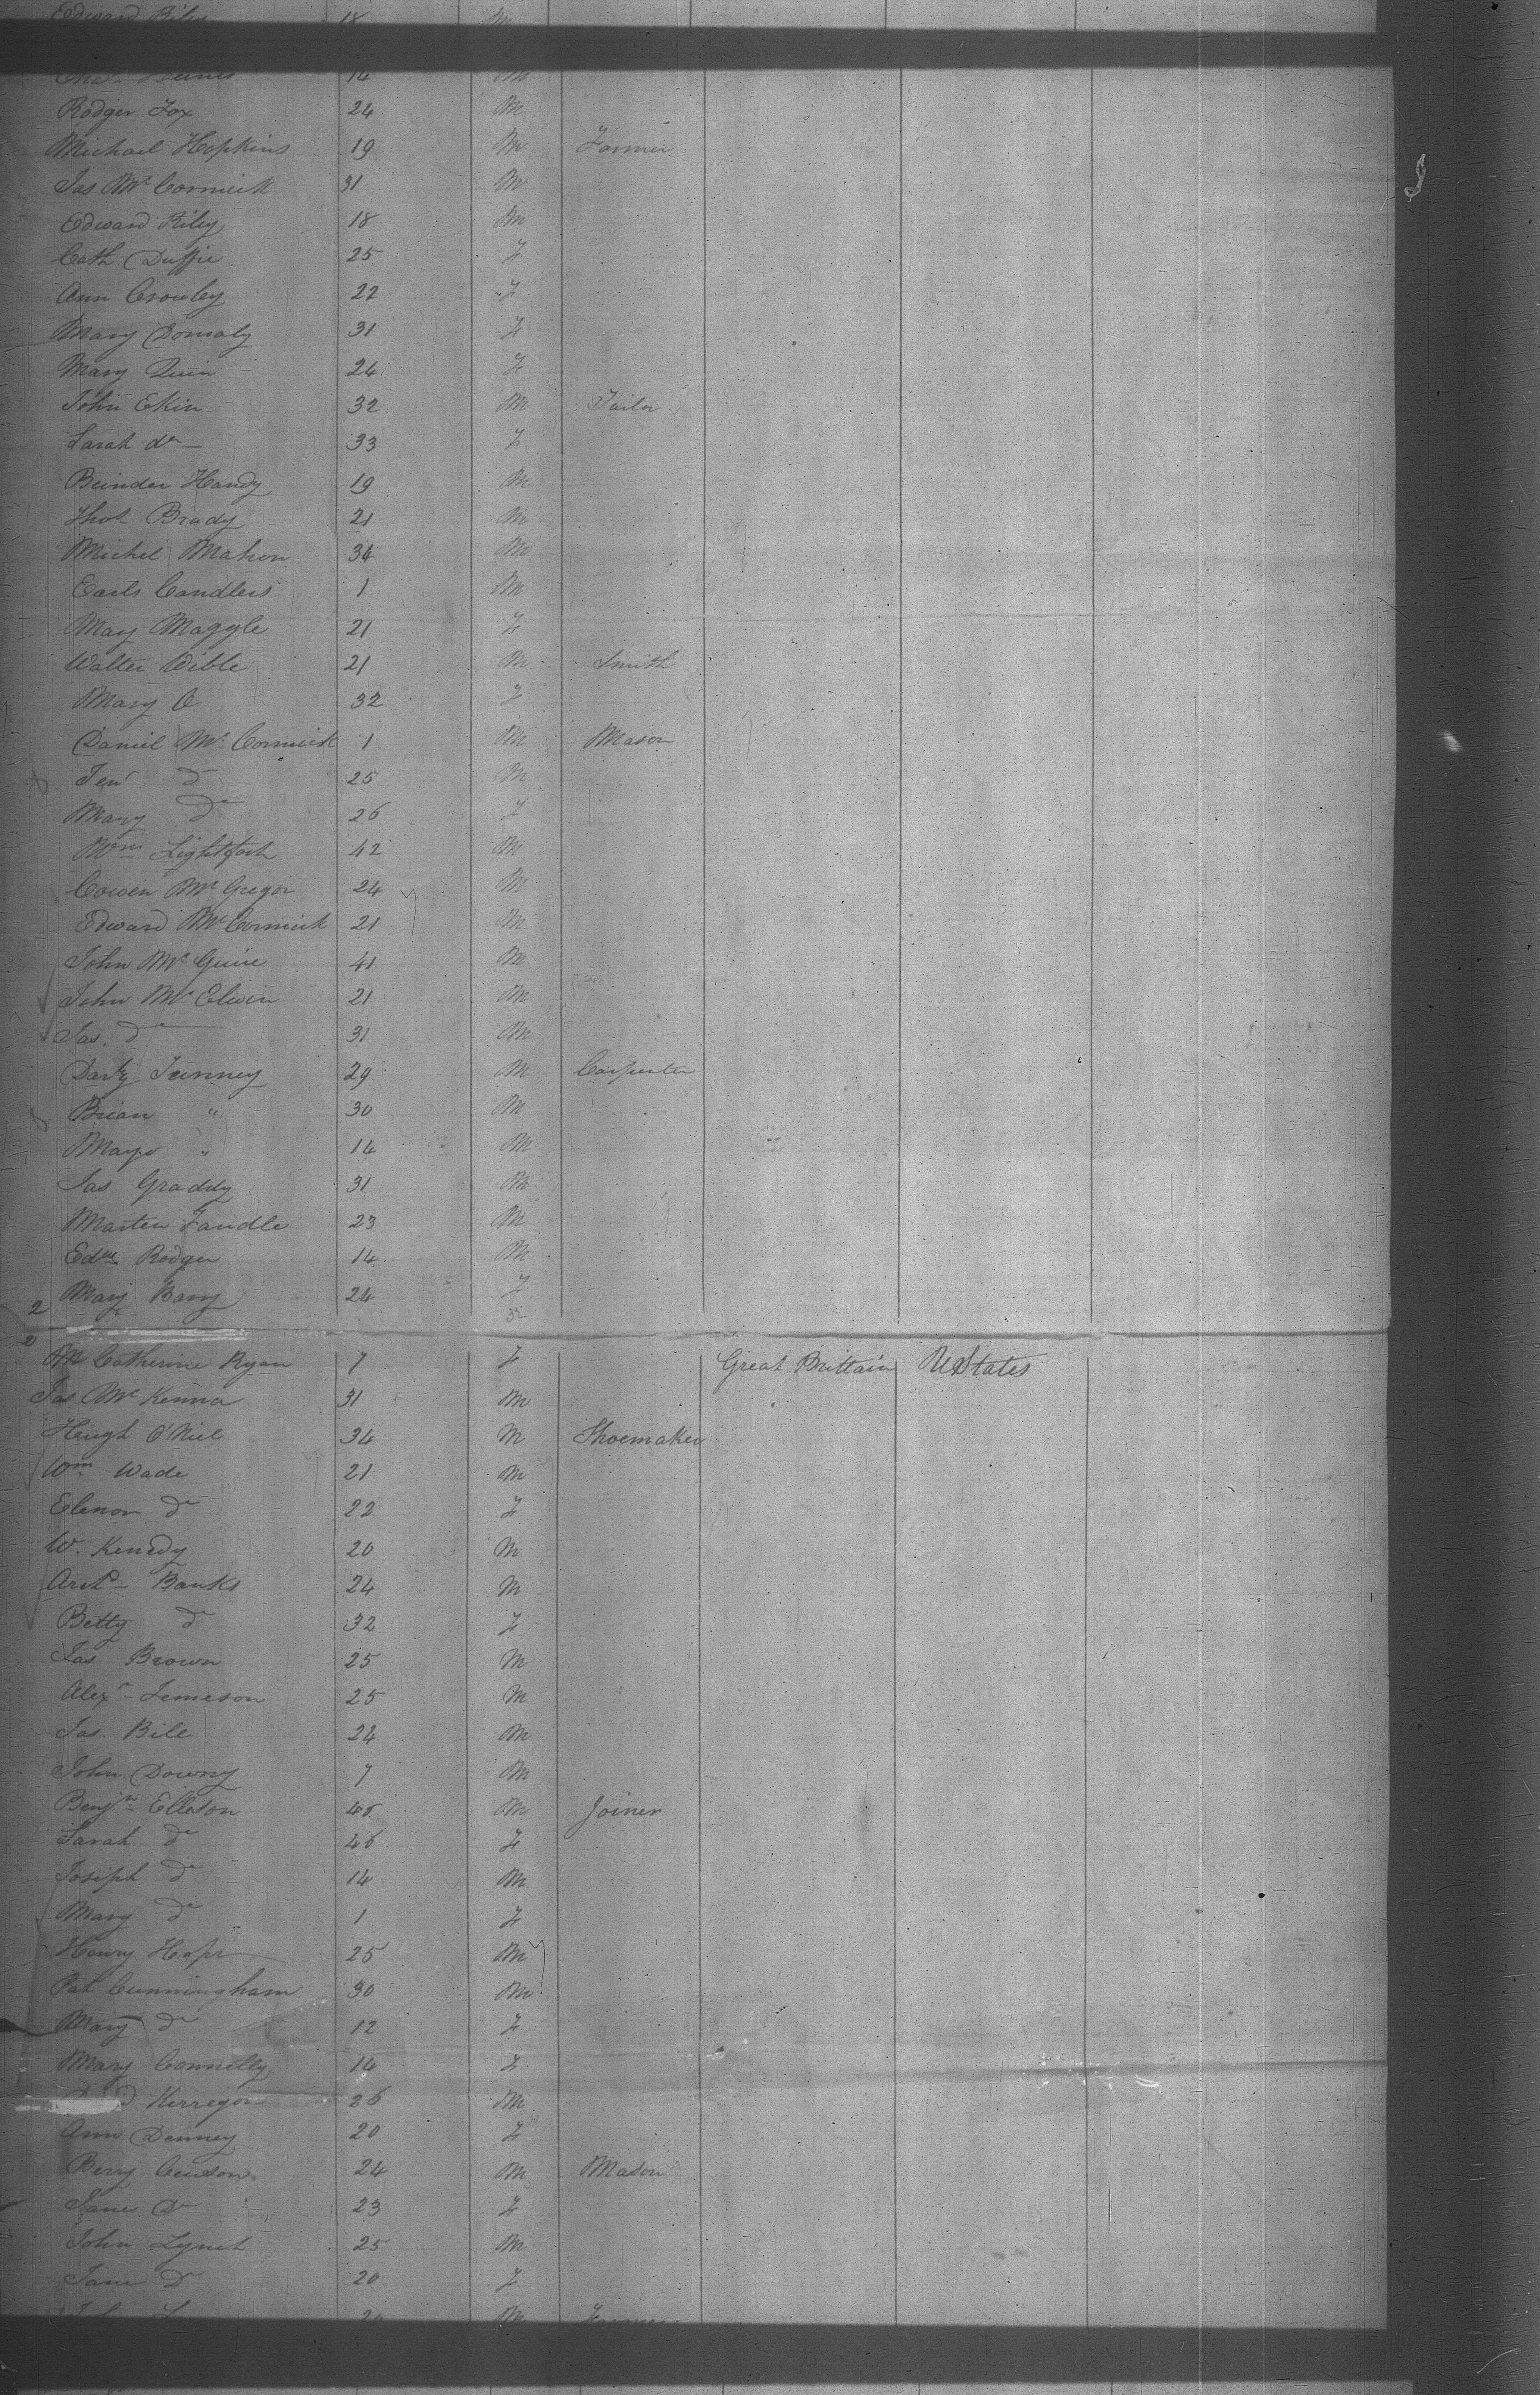 Edward Riley 18 M
14 M
Rodger Fox 24 M
Michael Hopkins 19 M Farmer
Jas Mc Cormick 31 M
Edward Riley 18 M
Cath Duffie 25 F
Ann Crowley 22 F
Mary Donnaly 31 F
Mary Quin 24 F
John Ekin 32 M Tailor
Sarah do 33 F
Handy 19 M
Thos Brady 21 M
Michel Mahon 34 M
Candlers 1 M
Mary Maggle 21 F
Walter Dible 21 M Smith
Mary 32 F
Daniel Mc Cormick 1 M Mason
do 25 M
Mary do 26 F
Wm 42 M
Cowen Mc Gregor 24 M
Edward Mc Cormick 21 M
John Mc Guire 41 M
John Mc Elwin 21 M
Jas. do 31 M
Darty Tunney 29 M Carpenter
Brian " 30 M
" 14 M
Jas Graddy 31 M
Marten Fandle 23 M
Rodger 14 M
Mary Barry 24 F
2 32
2
Catherine Ryan 7 F Great Brittain U States
Jas Mc Kenna 31 M
Hugh O'Niel 34 M Shoemaker
Wm Wade 21 M
Elenor do 22 F
W. Kenedy 20 M
Archd Banks 24 M
Betty do 32 F
Jas Brown 25 M
Alexr Jemeson 25 M
Jas. Bile 24 M
John Downy 7 M
Benjn Elleson 45 M Joiner
Sarah do 46 F
Joseph do 14 M
Mary do 1 F
Henry Hope 25 M
Pat Cunningham 30 M
Mary do 12 F
Mary Connelly 14 F
Kerregan 26 M
Ann Denney 20 F
Berry 24 M Mason
Jane Do 23 F
John Lynch 25 M
Jane Do 20 F